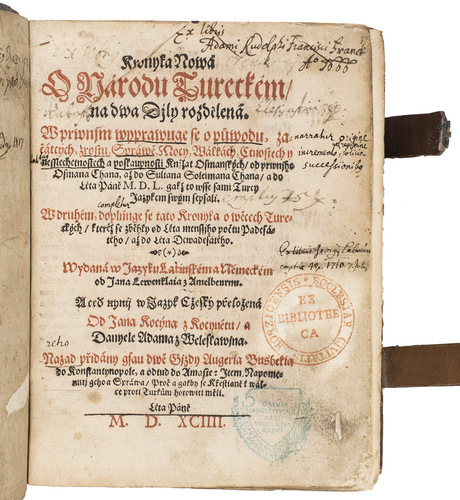 Ex libris
Adami Rudolphi Francisci
Aº 1666
Kronyka Nowá
O Národu Tureckém/
na dwa Djly rozdělená.
W prwnjm wyprawuge se o půwodu, za-
čátcých, zrostu, Spráwě, Mocy, Wálkách, Ctnostech y
nesslechetnostech a posskwrnosti Knjžat Osmanských/ od prwnjho
Osmana Chana, až do Sultana Soleimana Chana/ a do
Léta Páně M. D. L. gakž to wsse sami Turcy
Jazykem swým sepsali.
W druhém, doplňuge se táto Kronyka o wěcech Ture-
ckých/ kteréž se zběhly od Léta menssjho počtu Padesá-
tého/ až do Léta Dewadesátého.
Wydaná w Jazyku Latinském a Německém
od Jana Lewenklaia z Amelbeurnu.
A teď nynj w Jazyk Cžeský přeložená
Od Jana Kocýna z Kocynétu/ a
Danyele Adama z Weleslawjna.
Nazad přidány gsau dwě Gjzdy Augerla Busbekia
do Konstantynopole, a odtud do Amasie: Item, Napome-
nutj geho a Spráwa/ Proč a gakby se Křesťiané k wál-
ce proti Turkům hotowiti měli.
Léta Páně
M. D. XCIIII.
narratur origine
incremento
successionib9
EX
BIBLIOTHE
CA